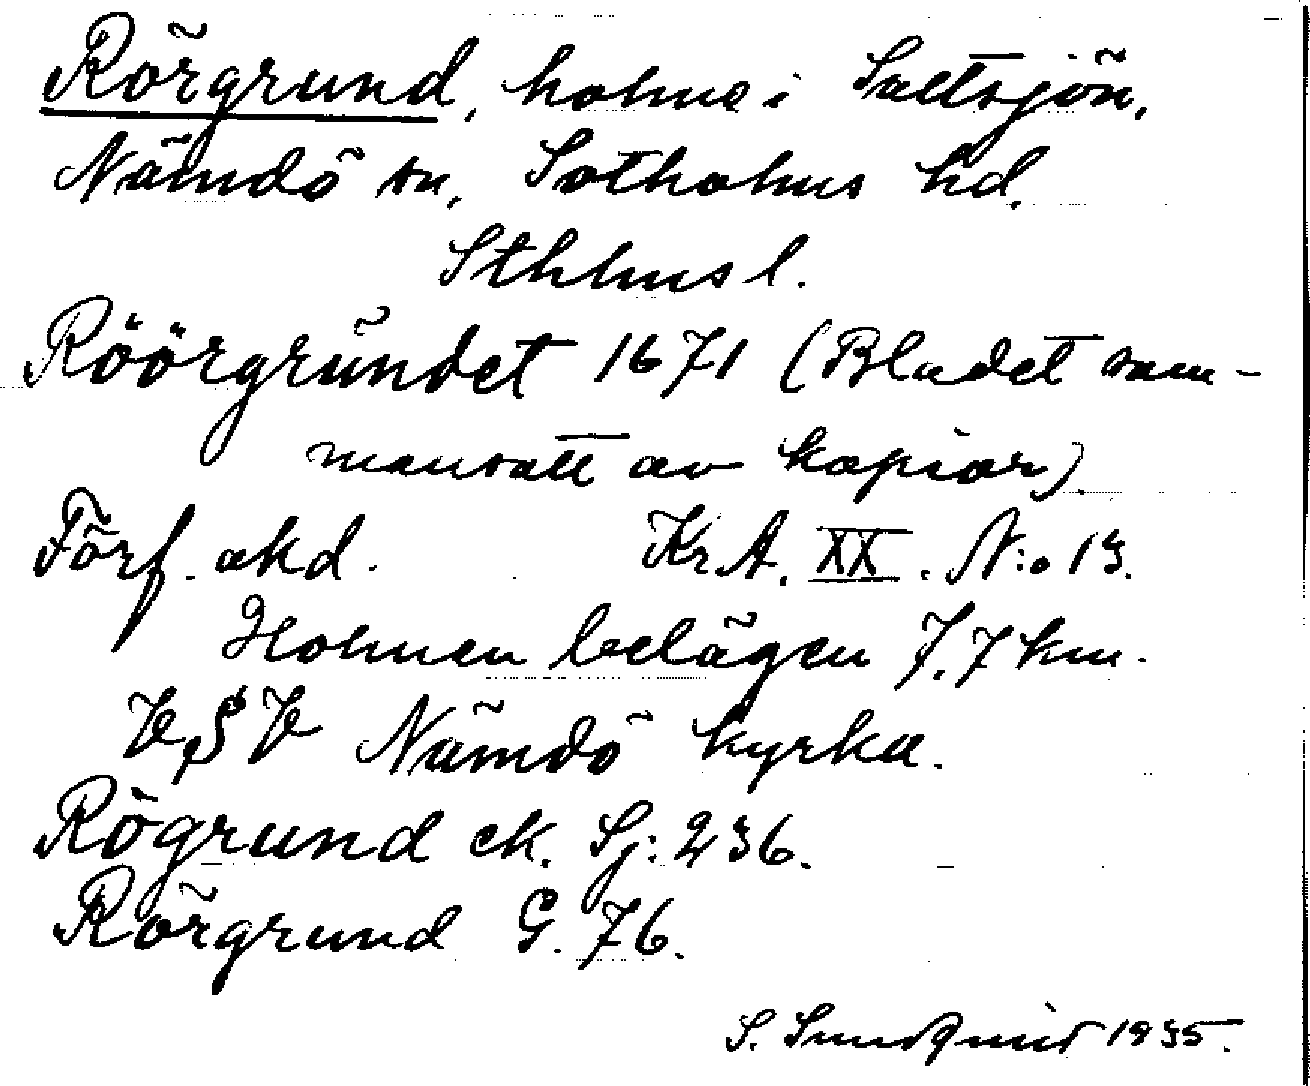 Rörgrund, holme i Saltsjön,
Nämdö sn, Sotholms hd,
Sthlms l.
Röörgrundet 1671 (Bladet sam-
mansatt av kopior).
Förf. okd. Kr.A. XX. N:o 13.
Holmen belägen 7,7 km.
V,SV Nämdö kyrka.
Rögrund ek. Sj: 236.
Rörgrund G. 76.
S. Sundquist 1935.